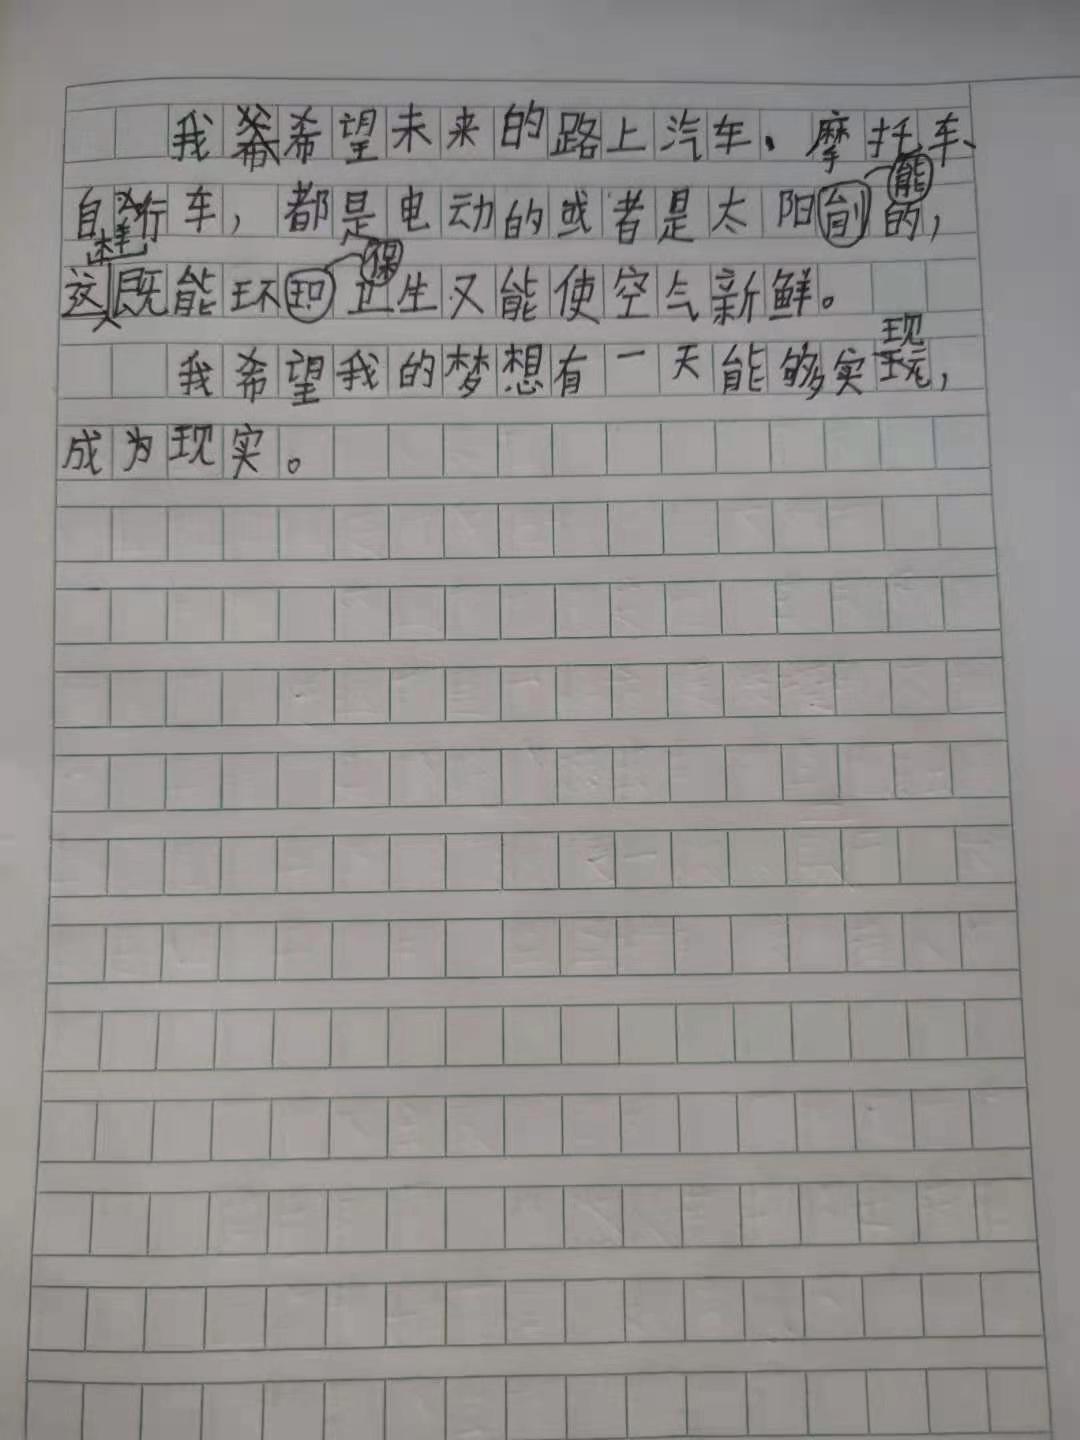 我希望未来的路上汽车、摩托车、
自行车，都是电动的或者是太阳能的，
这样既能环保卫生又能使空气新鲜。
我希望我的梦想有一天能够实现，
成为现实。